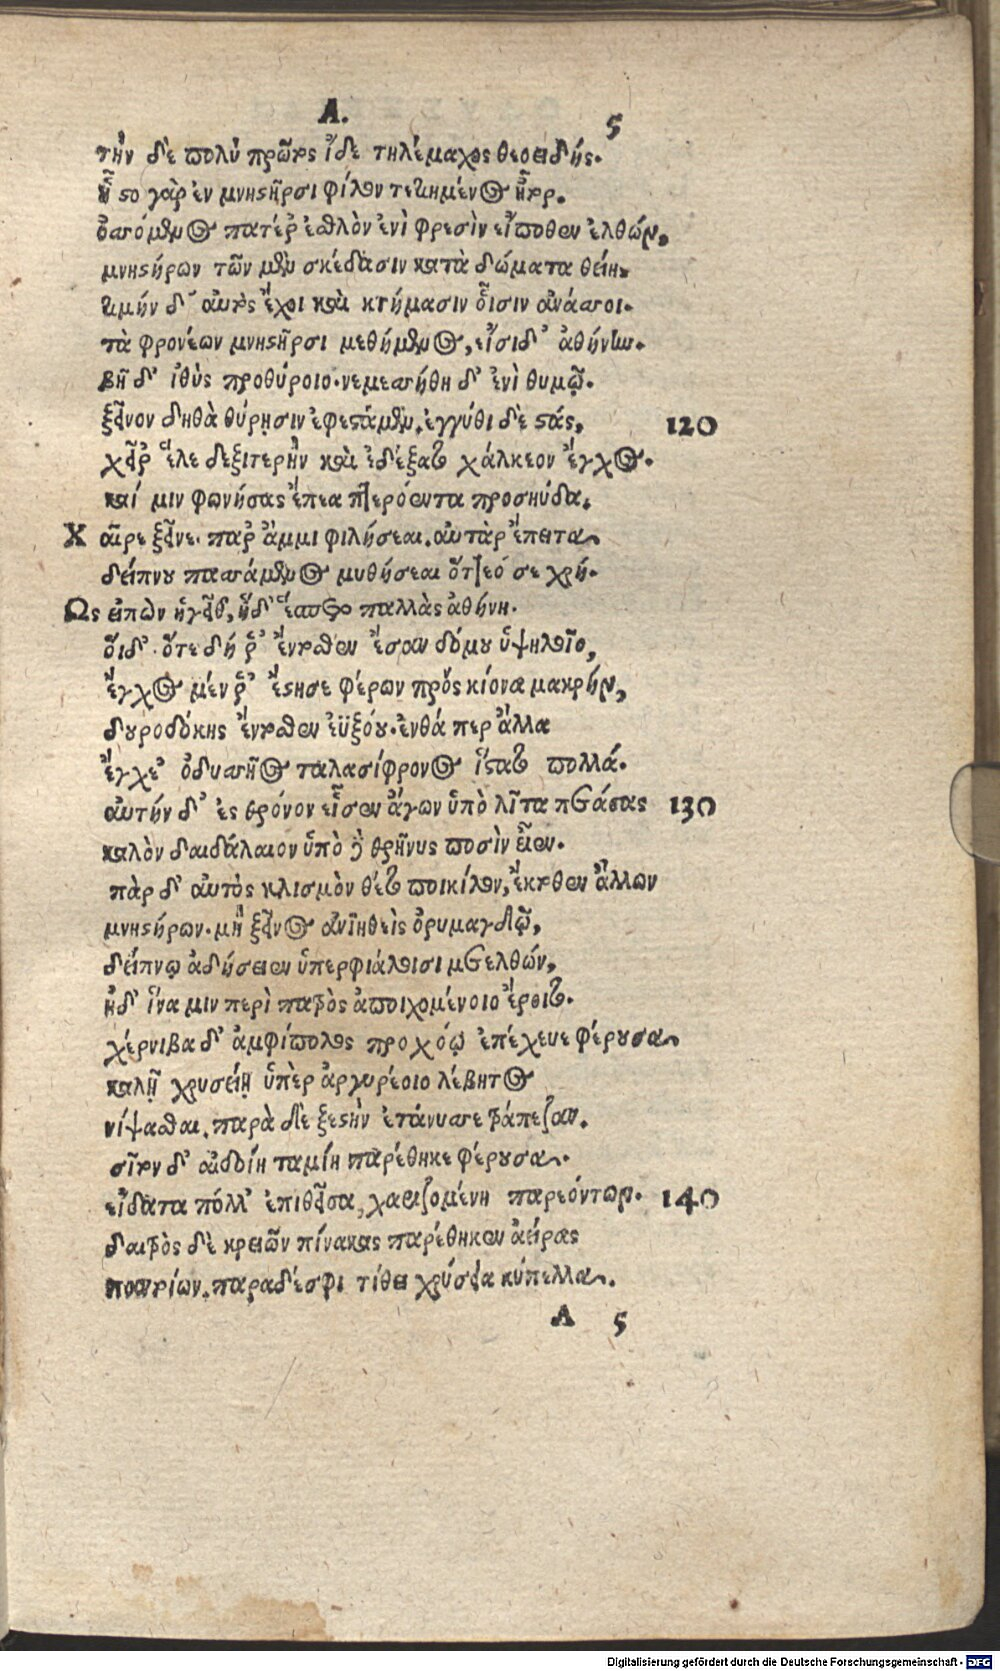 Α. 5
τὴν δὲ πολὺ πρῶτος ἴδε τηλέμαχος θεοειδής.
ἧστο γὰρ ἐν μνηστῆρσι φίλον τετιημένος ἦτορ.
ὀσσόμενος πατέρ' ἐσθλὸν ἐνὶ φρεσὶν εἴποθεν ἐλθών,
μνηστήρων τῶν μὲν σκέδασιν κατὰ δώματα θείη.
τιμὴν δ' αὐτὸς ἔχοι καὶ κτήμασιν οἷσιν ἀνάσσοι.
τὰ φρονέων μνηστῆρσι μεθήμενος, εἴσιδ' ἀθήνην.
βῆ δ' ἰθὺς προθύροιο. νεμεσσήθη δ' ἐνὶ θυμῷ.
ξεῖνον δηθὰ θύρῃσιν ἐφεστάμεν. ἐγγύθι δὲ στάς, 120
χεῖρ' ἕλε δεξιτερὴν καὶ ἐδέξατο χάλκεον ἔγχος.
καί μιν φωνήσας ἔπεα πτερόεντα προσηύδα.
Χαῖρε ξεῖνε. παρ' ἄμμι φιλήσεαι. αὐτὰρ ἔπειτα
δείπνου πασσάμενος μυθήσεαι ὅττεό σε χρή.
Ως εἰπὼν ἡγεῖθ', ἡ δ' ἕσπετο παλλὰς ἀθήνη.
οἵ δ'. ὅτε δή ῥ' ἔντοσθεν ἔσαν δόμου ὑψηλοῖο,
ἔγχος μέν ῥ' ἔστησε φέρων πρὸς κίονα μακρήν,
δουροδόκης ἔντοσθεν ἐϋξόου. ἔνθά περ ἄλλα
ἔγχε' ὀδυσσῆος ταλασίφρονος ἵστατο πολλά.
αὐτήν δ' ἐς θρόνον εἷσεν ἄγων ὑπὸ λῖτα πετάσας 130
καλὸν δαιδάλαιον ὑπὸ δὲ θρῆνυς ποσὶν ἦεν.
πὰρ δ' αὐτὸς κλισμὸν θέτο ποικίλον, ἔκτοθεν ἄλλων
μνηστήρων. μὴ ξεῖνος ἀνιηθεὶς ὀρυμαγδῷ,
δείπνῳ ἀδήσειεν ὑπερφιάλοισι μετελθών,
ἠδ' ἵνα μιν περὶ πατρὸς ἀποιχομένοιο ἔροιτο.
χέρνιβα δ' ἀμφίπολος προχόῳ ἐπέχευε φέρουσα
καλῇ χρυσείῃ ὑπὲρ ἀργυρέοιο λέβητος
νίψασθαι. παρὰ δὲ ξεστὴν ἐτάνυσσε τράπεζαν.
σῖτον δ' αἰδοίη ταμίη παρέθηκε φέρουσα.
εἴδατα πόλλ' ἐπιθεῖσα, χαριζομένη παρεόντων. 140
δαιτρὸς δὲ κρειῶν πίνακας παρέθηκεν ἀείρας
παντοίων. παραδέσφι τίθει χρύσεια κύπελλα.
Α 5